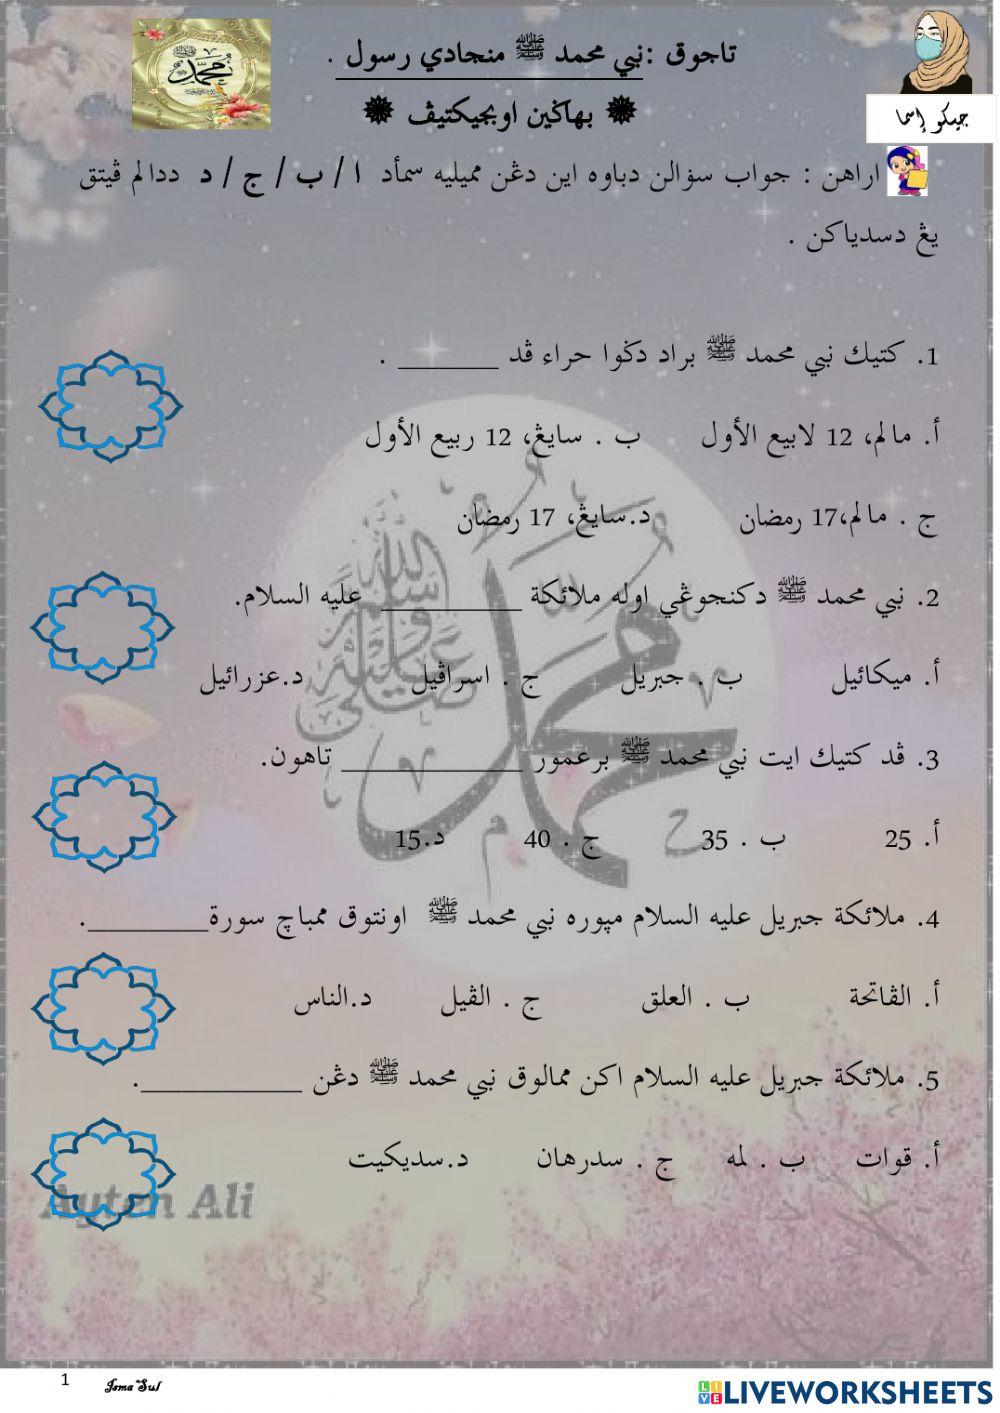 تاجوق :نبي محمد ﷺ منجادي رسول .
بهاڬين اوبجيكتيڤ
جيكو إسما
اراهن : جواب سؤالن دباوه اين دڠن مميليه سمأد ا / ب / ج / د ددالم ڤيتق
يڠ دسدياكن .
1. كتيك نبي محمد ﷺ براد دڬوا حراء ڤد ________ .
أ. مالم، 12 لابيع الأول ب . سايڠ، 12 ربيع الأول
ج . مالم،17 رمضان د.سايڠ، 17 رمضان
2. نبي محمد ﷺ دكنجوڠي اوله ملائكة ___________ عليه السلام.
أ. ميكائيل ب . جبريل ج . اسراڤيل د.عزرائيل
3. ڤد كتيك ايت نبي محمد ﷺ برعمور ______________ تاهون.
أ. 25 ب . 35 ج . 40 د.15
4. ملائكة جبريل عليه السلام مپوره نبي محمد ﷺ اونتوق ممباچ سورة_________.
أ. الڤاتحة ب . العلق ج . الڤيل د.الناس
5. ملائكة جبريل عليه السلام اكن ممالوق نبي محمد ﷺ دڠن ____________.
أ. قوات ب . لمه ج . سدرهان د.سديكيت
Ayten Ali
1
Isma Sul
LIVEWORKSHEETS